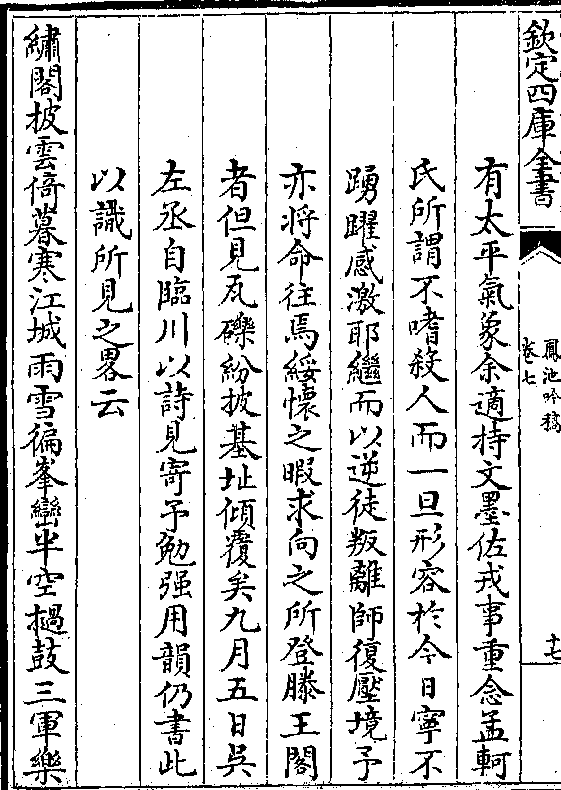 欽定四庫全書
鳳池吟稿
卷七
十七
有太平氣象余適持文墨佐戎事重念孟軻
氏所謂不嗜殺人而一旦形容於今日寧不
踴躍感激耶繼而以逆徒叛離師復壓境予
亦將命往焉綏懷之暇求向之所登滕王閣
者但見瓦礫紛披基址傾覆矣九月五日吳
左丞自臨川以詩見寄予勉强用韻仍書此
以識所見之畧云
繡閣披雲倚暮寒江城雨雪徧峯巒半空撾鼓三軍樂